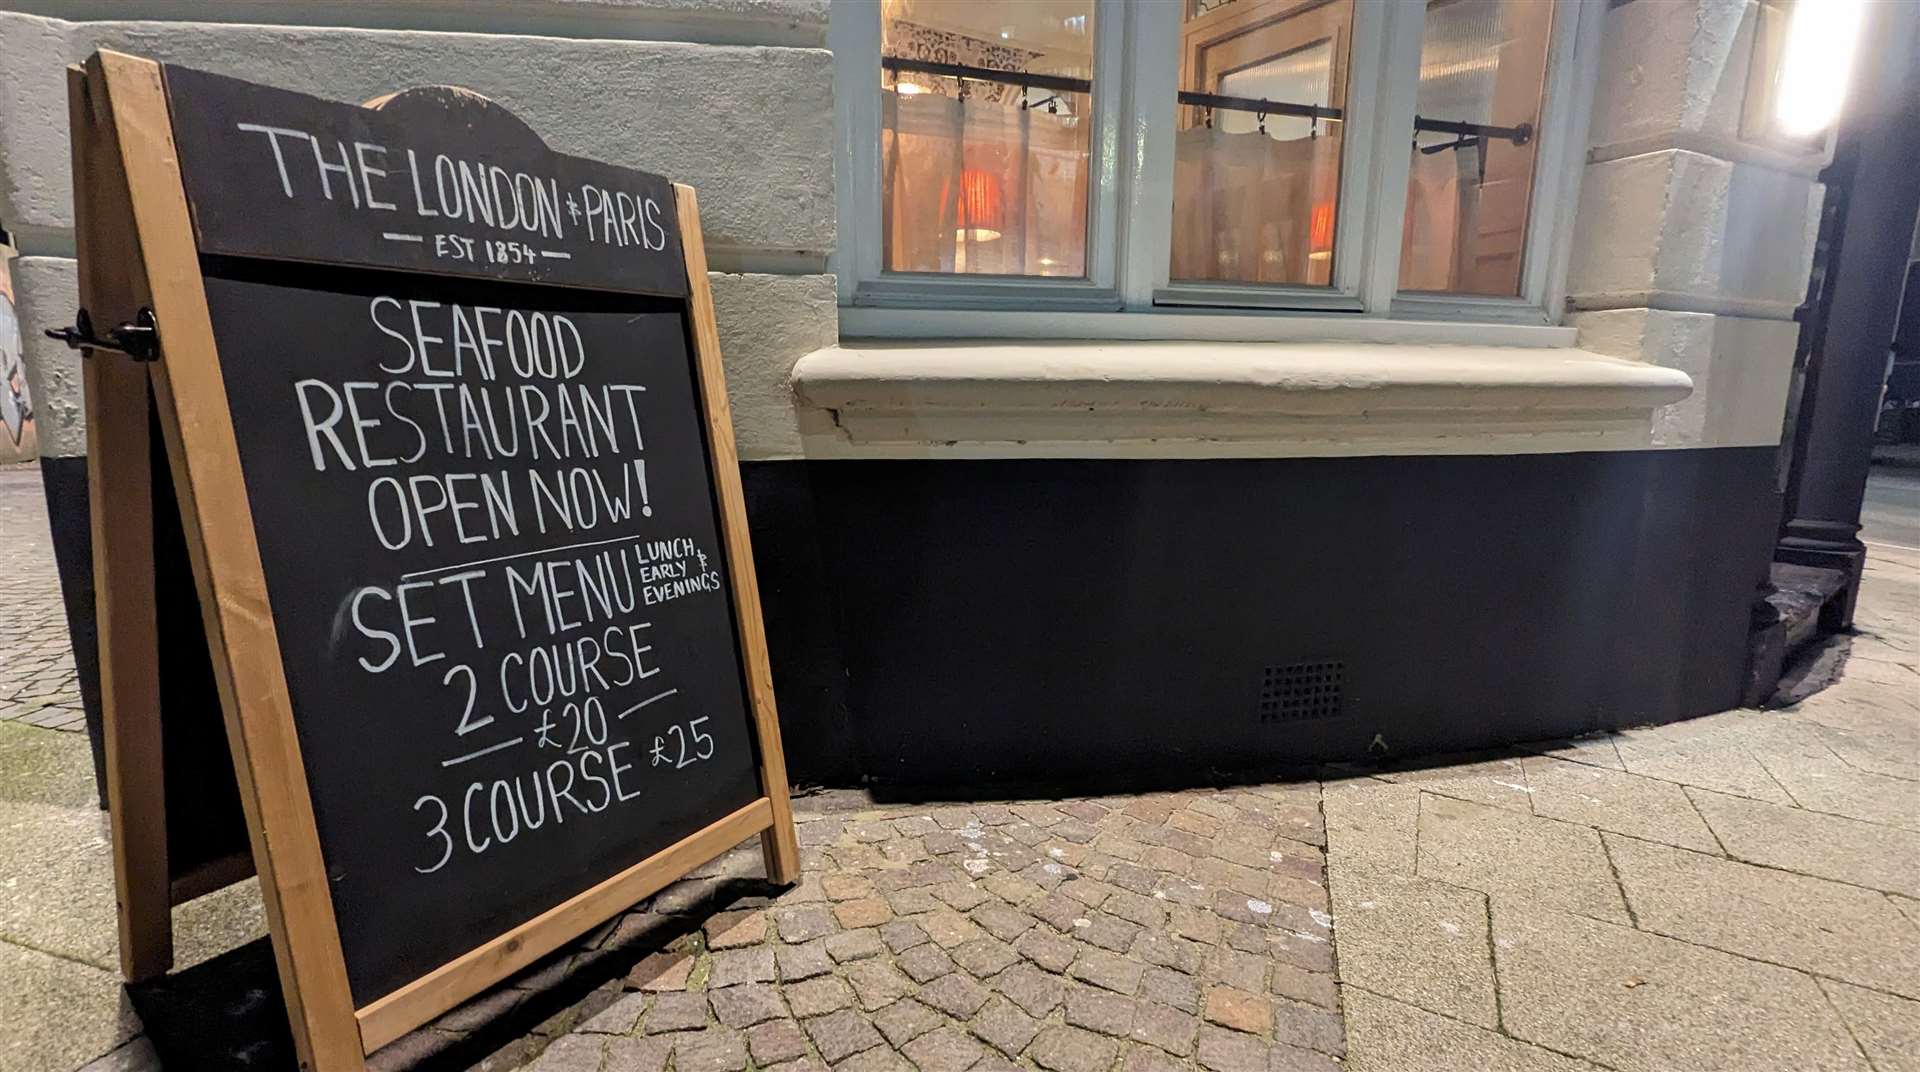 THE LONDON & PARIS
EST 1854
SEAFOOD
RESTAURANT
OPEN NOW!
SET MENU LUNCH &
EARLY
EVENINGS
2 COURSE
£20
3 COURSE £25